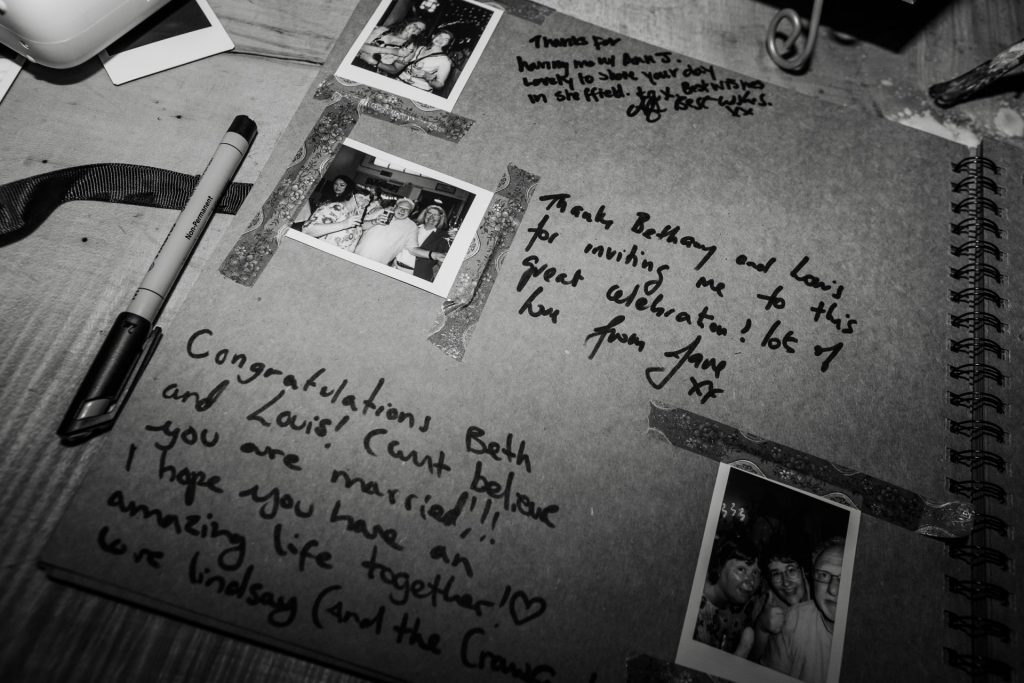 Thanks for
having me
Lovely to share your day
in sheffield. Best wishes
Best wishes.
xx
Non-Permanent
Thanks Bethany and Louis
for inviting me to this
great celebration! lots of
love from Jane
xx
Congratulations Beth
and Louis! Cant believe
you are married!!!
I hope you have an
amazing life together!♡
Love lindsay (And the